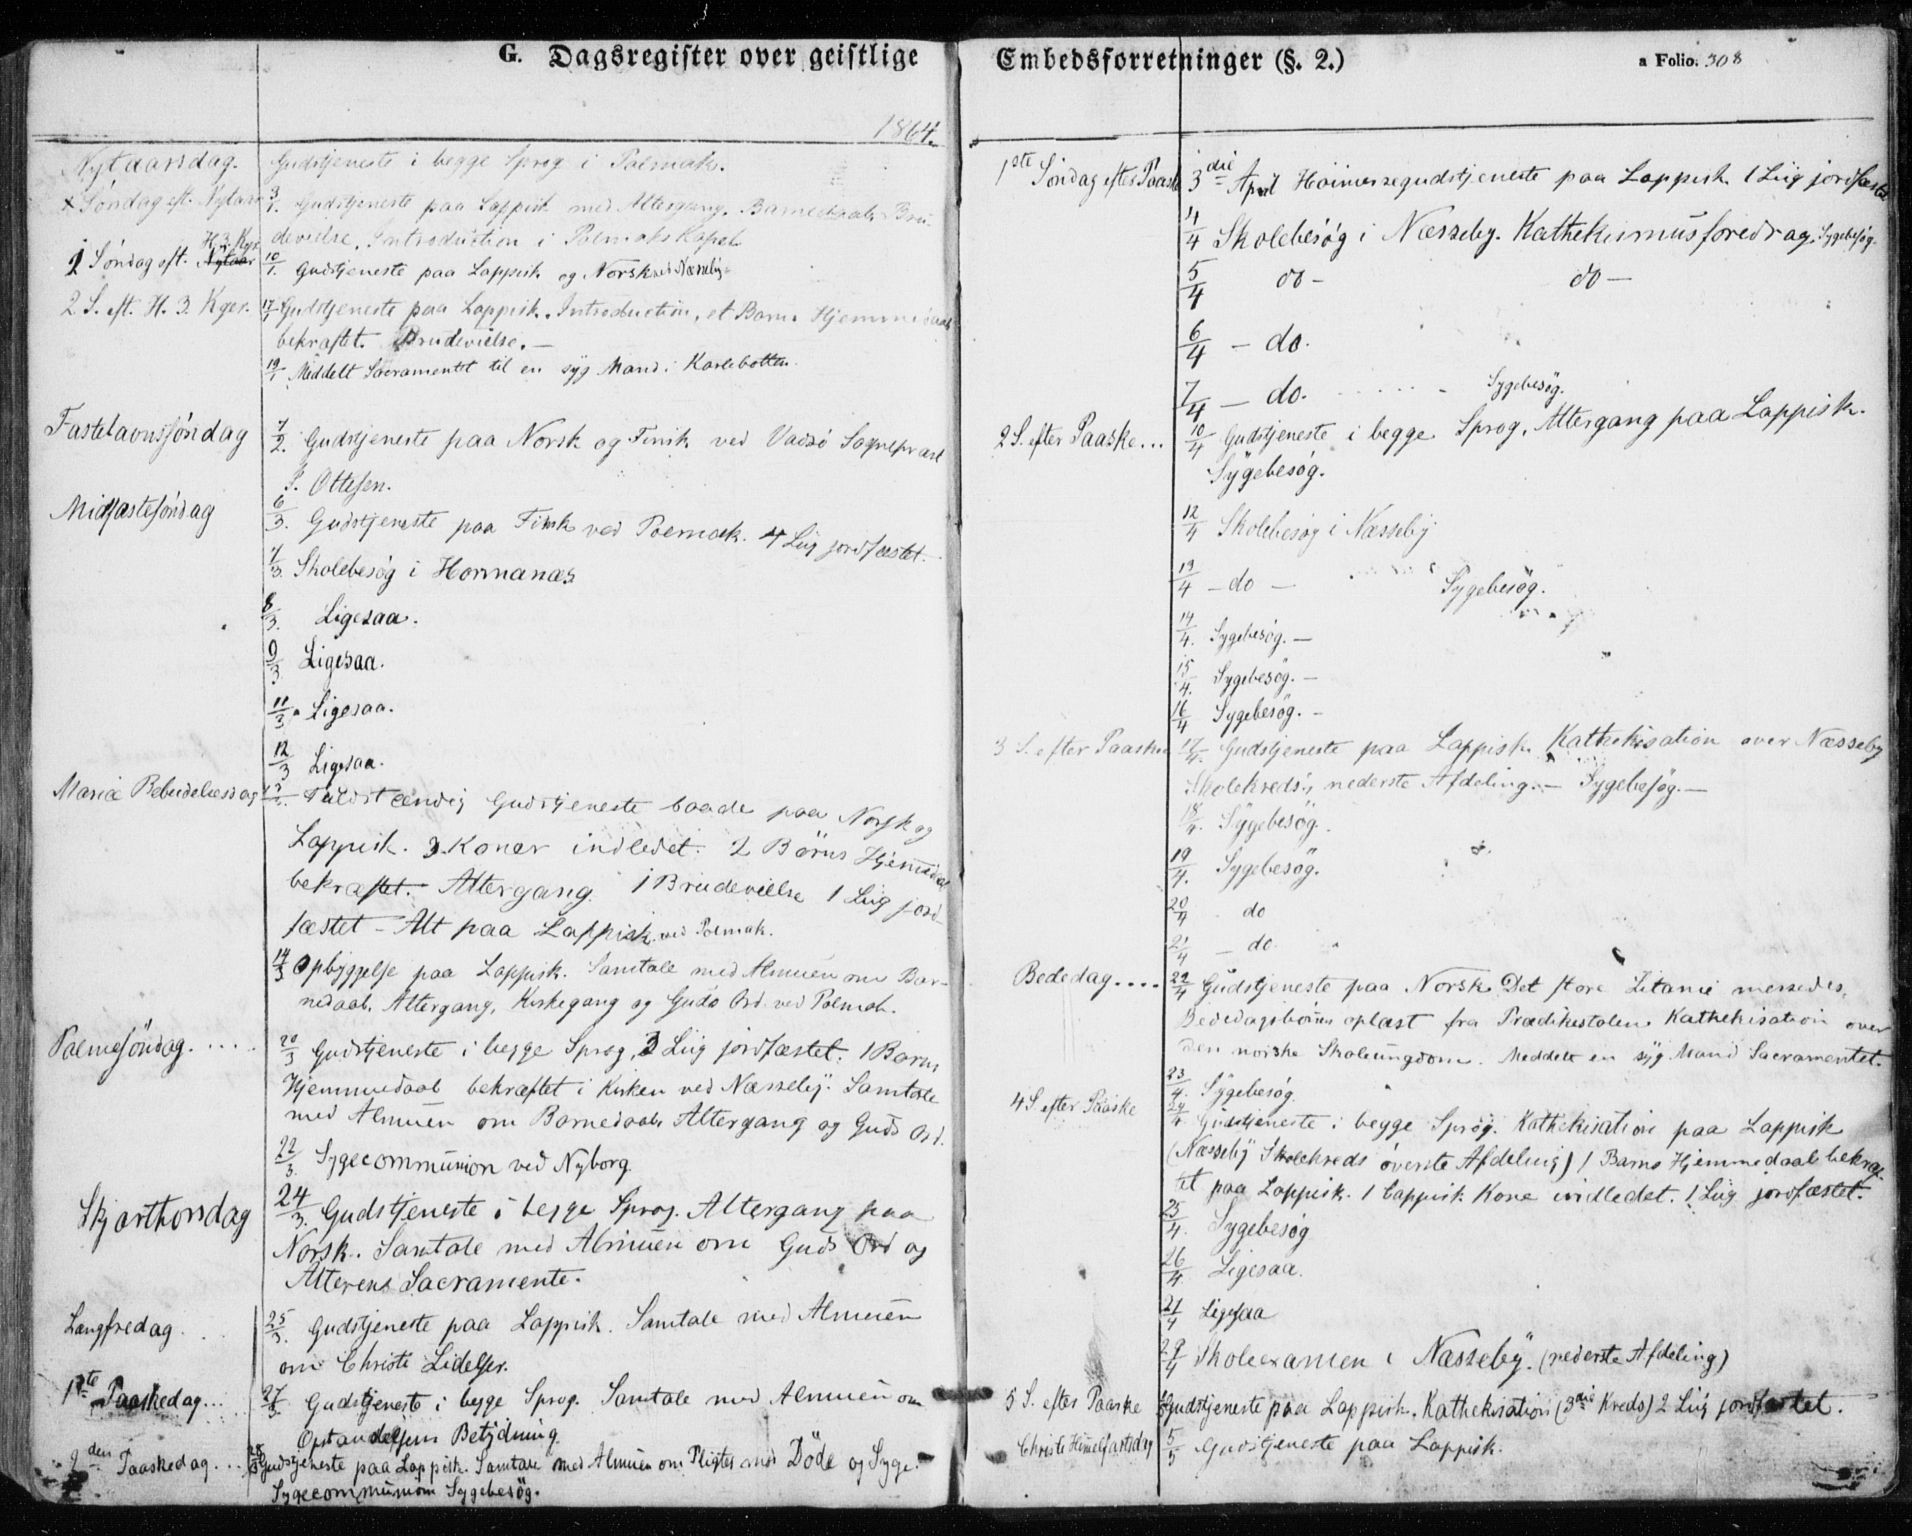 G. Dagsregister over geistlige
1864.
Nytaarsdag. Gudstjeneste i begge Sprog i Polmak.
Søndag eft. Nytaar 3/1. Gudstjeneste paa Lappisk med Altergang. Barnedaab. Bru-
devielse. Introduction i Polmaks Kapel
1 Søndag eft. H. 3. Kgr. 10/1. Gudstjeneste paa Lappisk og Norsk ved Næsseby.
2 S. eft. H. 3. Kger. 17/1 Gudstjeneste paa Lappisk. Introduction, et Barns Hjemmedaab
bekræftet. Brudevielse. —
19/1 Meddelt Sacramentet til en syg Mand i Karlebotten.
Fastelavnssöndag 7/2. Gudstjeneste paa Norsk og Finsk ved Vadsö Sognepræst
P. Ottesen.
Midfastesöndag 6/3. Gudstjeneste paa Finsk ved Polmak. 4 Liig jordfæstet.
7/3. Skolebesög i Hornanæs
8/3. Ligesaa.
9/3 Ligesaa.
11/3. Ligesaa.
12/3 Ligesaa.
Mariæ Bebudelsesdag 13/3. Fuldstændig Gudstjeneste baade paa Norsk og
Lappisk. 3 Koner indledet. 2 Börns Hjemmedaab
bekræftet. Altergang. 1 Brudevielse 1 Liig jord-
fæstet – Alt paa Lappisk ved Polmak.
14/3 Opbyggelse paa Lappisk. Samtale med Almuen om Bar-
nedaab, Altergang, Kirkegang og Guds Ord ved Polmak.
Palmesöndag. .... 20/3 Gudstjeneste i begge Sprog, 3 Liig jordfæstet. 1 Barns
Hjemmedaab bekræftet i Kirken ved Næsseby. Samtale
med Almuen om Barnedaab, Altergang og Guds Ord.
22/3. Sygecommunion ved Nyborg.
Skjærthorsdag 24/3. Gudstjeneste i begge Sprog. Altergang paa
Norsk. Samtale med Almuen om Guds Ord og
Alterens Sacramente.
Langfredag. .. 25/3. Gudstjeneste paa Lappisk. Samtale med Almuen
om Christi Lidelser.
1ste Paaskedag... 27/3. Gudstjeneste i begge Sprog. Samtale med Almuen om
Opstandelsens Betydning.
2den Paaskedag... 28/3 Gudstjeneste paa Lappisk. Samtale med Almuen om Pligter mod Döde og Syge.
Sygecommunion Sygebesög.
Embedsforretninger (§. 2.)
a Folio. 308
1ste Söndag efter Paaske 3die April Höimessegudstjeneste paa Lappisk 1 Liig jordfæstet
4/4 Skolebesög i Næsseby. Kathekismusforedrag. Sygebesög.
5/4 do – do –
6/4 – do.
7/4 – do. Sygebesög.
2 S. efter Paaske... 10/4 Gudstjeneste i begge Sprog. Altergang paa Lappisk.
Sygebesög.
12/4 Skolebesög i Næsseby
13/4 – do – Sygebesög.
14/4. Sygebesög. —
15/4. Sygebesög. –
16/4 Sygebesög. –
3 S. efter Paaske 17/4. Gudstjeneste paa Lappisk Kathekisation over Næsseby
Skolekreds's nederste Afdeling. – Sygebesög. –
18/4. Sygebesög.
19/4. Sygebesög.
20/4 do
21/4 – do
Bededag .... 22/4 Gudstjeneste paa Norsk. Det store Litanie messedes,
Bededagsbönnen oplæst fra Prædikestolen. Kathekisation over
den norske Skoleungdom. Meddelt en syg Mand Sacramentet.
23/4. Sygebesög.
4 S. efter Paaske 24/4 Gudstjeneste i begge Sprog. Kathekisation paa Lappisk
(Næsseby Skolekreds överste Afdeling) 1 Barns Hjemmedaab bekræf-
tet paa Lappisk. 1 lappisk Kone indledet. 1 Liig jordfæstet.
25/4. Sygebesög
26/4 Ligesaa.
27/4 Ligesaa
29/4 Skoleexamen i Næsseby. (nederste Afdeling)
5 S. efter Paaske Gudstjeneste paa Lappisk. Kathekisation (3die Kreds) 2 Liig jordfæstet.
Christi Himmelfartsdag 5/5 Gudstjeneste paa Lappisk.